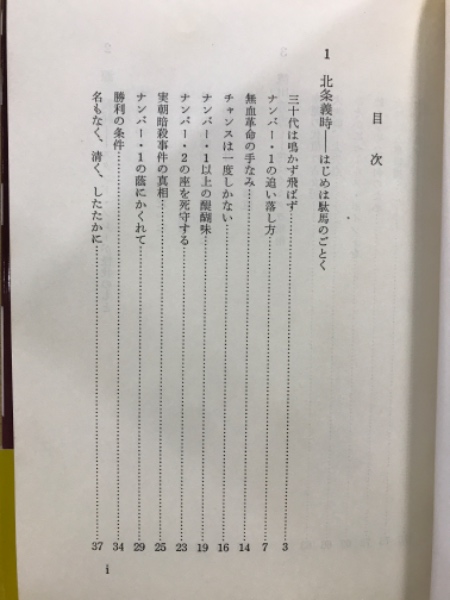 目次
1 北条義時――はじめは駄馬のごとく
三十代は鳴かず飛ばず……3
ナンバー・1の追い落し方……7
無血革命の手なみ……14
チャンスは一度しかない……16
ナンバー・1以上の醍醐味……19
ナンバー・2の座を死守する……23
実朝暗殺事件の真相……25
ナンバー・1の蔭にかくれて……29
勝利の条件……34
名もなく、清く、したたかに……37
i